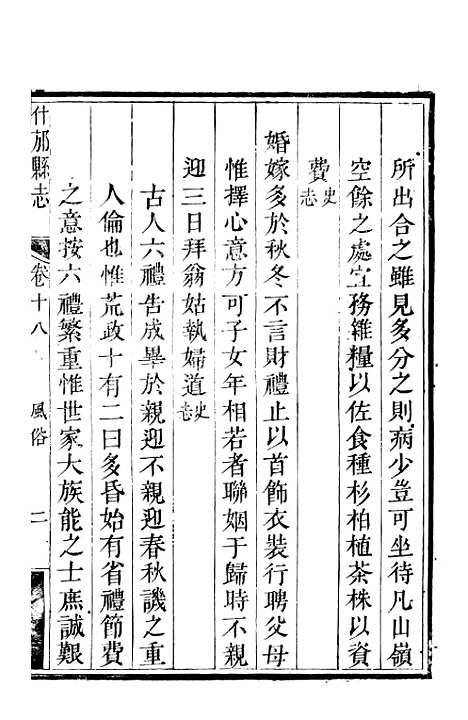 所出合之雖見多分之則病少豈可坐待凡山嶺
空餘之處宜務雜糧以佐食種杉柏植茶株以資
費史志
婚嫁多於秋冬不言財禮止以首飾衣裝行聘父母
惟擇心意方可子女年相若者聯姻于歸時不親
迎三日拜翁姑執婦道史志
古人六禮告成畢於親迎不親迎春秋譏之重
人倫也惟荒政十有二曰多昏始有省禮節費
之意按六禮繁重惟世家大族能之士庶誠艱
什邡縣志 卷十八 風俗 二